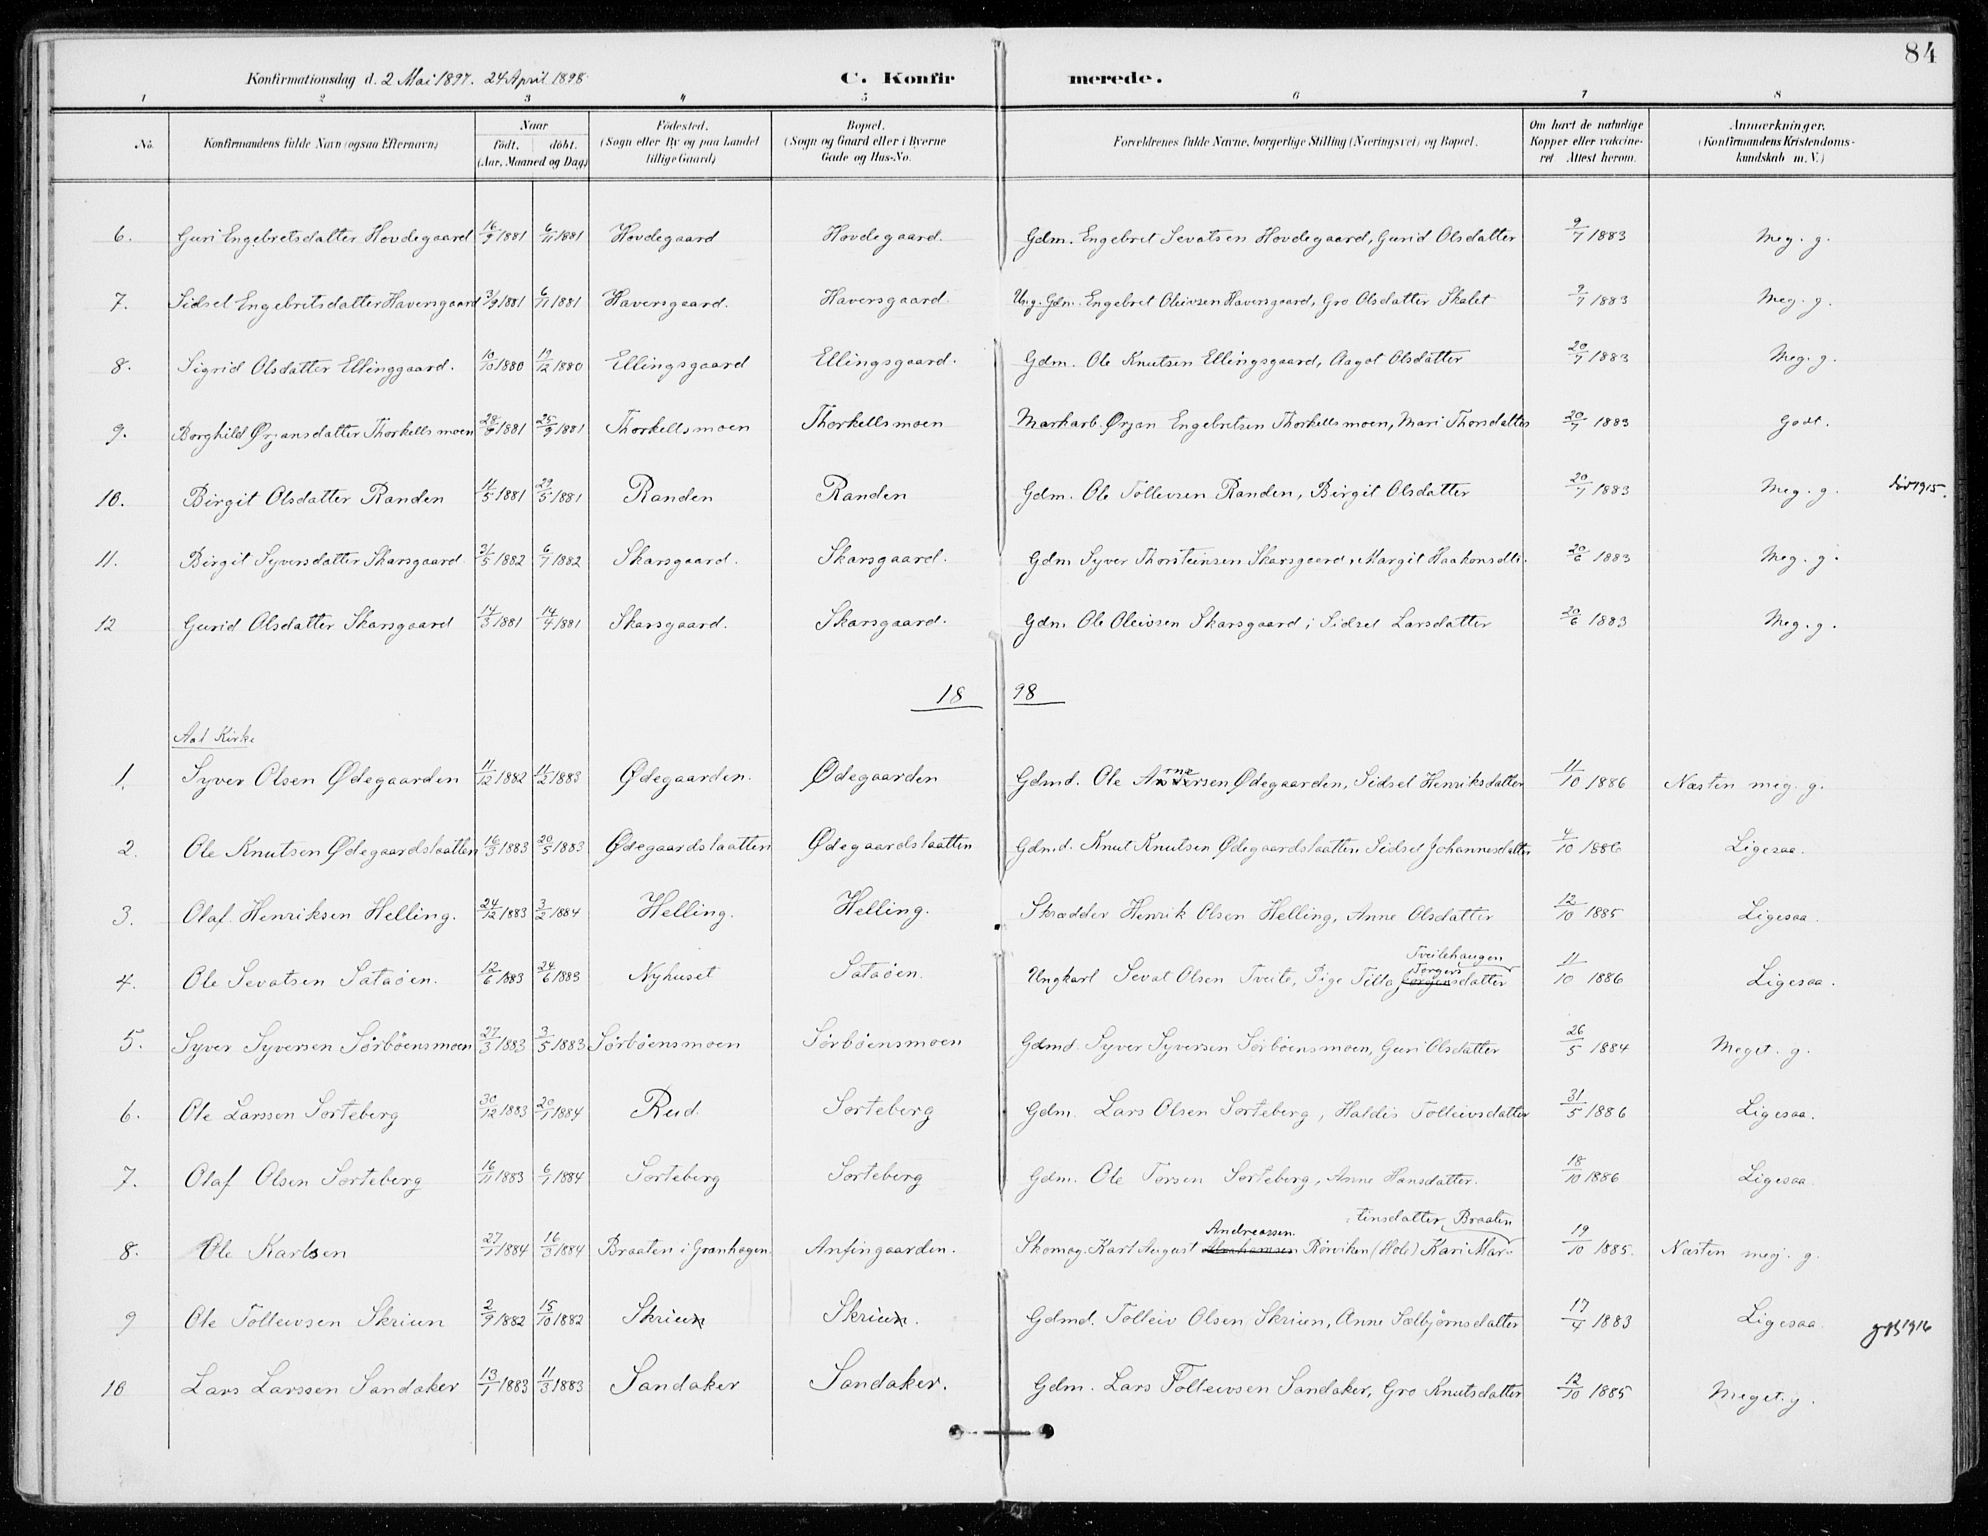 84
Konfirmationsdag d. 2 Mai 1897. 24 April 1898 C. Konfirmerede.
1 2 3 4 5 6 7 8
No. Konfirmandens fulde Navn (ogsaa Efternavn) Naar födt. döbt. (Aar, Maaned og Dag) Födested. (Sogn eller By og paa Landet tillige Gaard) Bopæl. (Sogn og Gaard eller i Byerne Gade og Hus-No. Forældrenes fulde Navne, borgerlige Stilling (Næringsvei) og Bopæl. Om havt de naturlige Kopper eller vakcineret Attest herom. Anmærkninger. (Konfirmandens Kristendomskundskab m. V.)
6. Guri Engebretsdatter Hovdegaard 16/9 1881 6/11 1881 Hovdegaard Hovdegaard. Gdm. Engebret Sevatsen Hovdegaard, Gurid Olsdatter 9/7 1883 Meg. g.
7. Sidsel Engebritsdatter Haversgaard 3/9 1881 6/11 1881 Haversgaard. Haversgaard. Ung. Gdm. Engebret Oleivsen Haversgaard, Gro Olsdatter Skalet 9/7 1883 Meg. g.
8. Sigrid Olsdatter Ellinggaard. 10/10 1880 19/12 1880 Ellingsgaard Ellingsgaard. Gdm. Ole Knutsen Ellingsgaard, Aagot Olsdatter 20/7 1883 Meg. g.
9. Borghild Ørjansdatter Thorkellsmoen 28/8 1881 25/9 1881 Thorkellsmoen Thorkellsmoen Markarb. Ørjan Engebretsen Thorkellsmoen, Mari Thorsdatter 20/7 1883 Godt.
10. Birgit Olsdatter Randen 11/5 1881 29/5 1881 Randen Randen Gdm. Ole Tollevsen Randen, Birgit Olsdatter 20/7 1883 Meg. g. död 1915.
11. Birgit Syversdatter Skarsgaard. 31/5 1882 6/7 1882 Skarsgaard. Skarsgaard. Gdm Syver Thorsteinsen Skarsgaard, Margit Haakonsdtr. 20/6 1883 Meg. g.
12 Gurid Olsdatter Skarsgaard 14/3 1881 14/4 1881 Skarsgaard. Skarsgaard. Gdm. Ole Oleivsen Skarsgaard; Sidsel Larsdatter 20/6 1883 Meg. g.
18 98
Aal Kirke
1. Syver Olsen Ødegaarden 11/12 1882 11/2 1883 Ødegaarden. Ødegaarden Gdmd. Ole Arnesen Ødegaarden, Sidsel Henriksdatter 11/10 1886 Næsten meg. g.
2. Ole Knutsen Ødegaardslaatten 16/3 1883 20/5 1883 Ødegaardslaatten Ødegaardslaatten Gdmd. Knut Knutsen Ødegaardslaatten, Sidsel Johannesdatter 4/10 1886 Ligesaa.
3. Olaf Henriksen Helling. 24/12 1883 3/2 1884 Helling. Helling. Skrædder Henrik Olsen Helling, Anne Olsdatter 12/10 1885 Ligesaa.
Tveitehaugen
4. Ole Sevatsen Sataöen. 12/6 1883 24/6 1883 Nyhuset Sataöen. Ungkarl Sevat Olsen Tveite, Pige Tilla Torgersdatter 11/10 1886 Ligesaa.
5. Syver Syversen Sörböensmoen 27/3 1883 3/5 1883 Sörböensmoen Sörböensmoen Gdmd. Syver Syversen Sörböensmoen, Guri Olsdatter 26/5 1884 Meget. g.
6. Ole Larssen Sorteberg 30/12 1883 20/1 1884 Rud. Sorteberg Gdm. Lars Olsen Sorteberg, Haldis Tolleivsdatter 31/5 1886 Ligesaa.
7. Olaf Olsen Sorteberg 16/11 1883 6/1 1884 Sorteberg Sorteberg Gdm. Ole Torsen Sorteberg, Anne Hansdatter. 18/10 1886 Ligesaa.
Andreassen. tinsdatter Braaten
8. Ole Karlsen 27/1 1884 16/3 1884 Braaten i Granhagen. Anfingaarden. Skomag. Karl August Abrahamsen Rörviken (Hole) Kari Mar- 19/10 1885. Næsten meg. g.
9 Ole Tolleivsen Skriun 2/9 1882 15/10 1882 Skriun Skriun. Gdmd. Tolleiv Olsen Skriun, Anne Sælbjørnsdatter 17/4 1883 Ligesaa. 1916
10 Lars Larssen Sandaker 13/1 1883 11/3 1883 Sandaker Sandaker. Gdm. Lars Tolleivsen Sandaker, Gro Knutsdatter 12/10 1885 Meget. g.